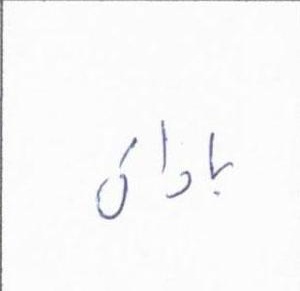 باران